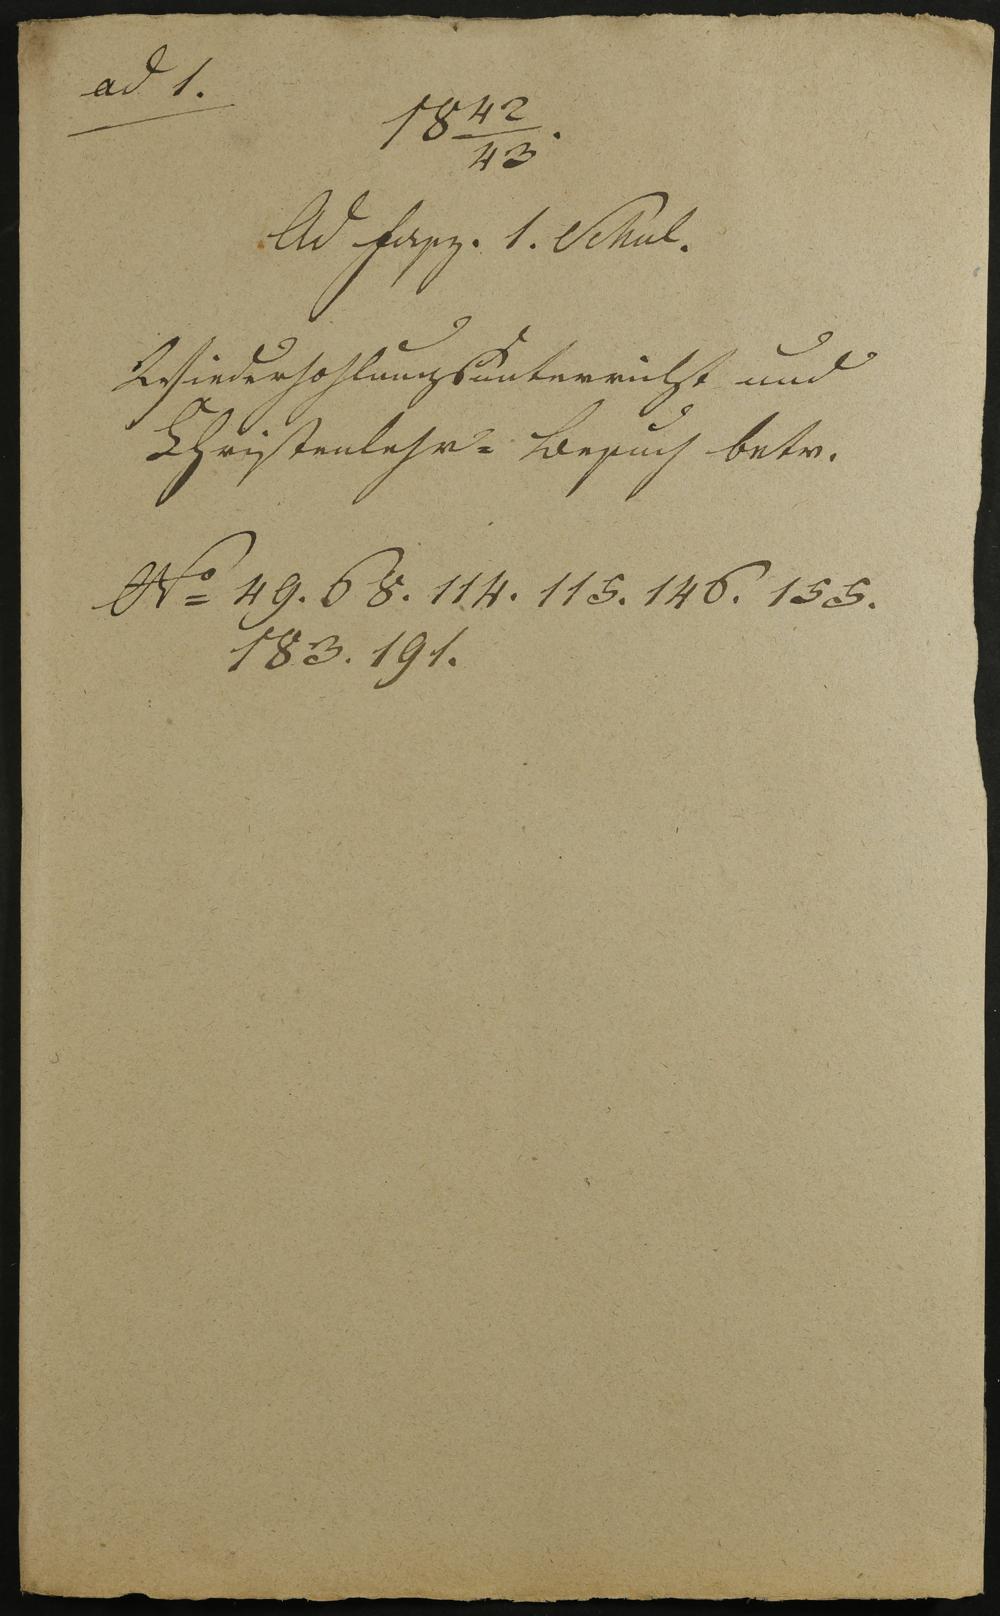 ad 1.
18 42/43.
Ad fasz. 1. Schul.
Wiederhohlungsunterricht und
Christenlehr- Besuch betr.
No 49. 68. 114. 115. 146. 155.
183. 191.